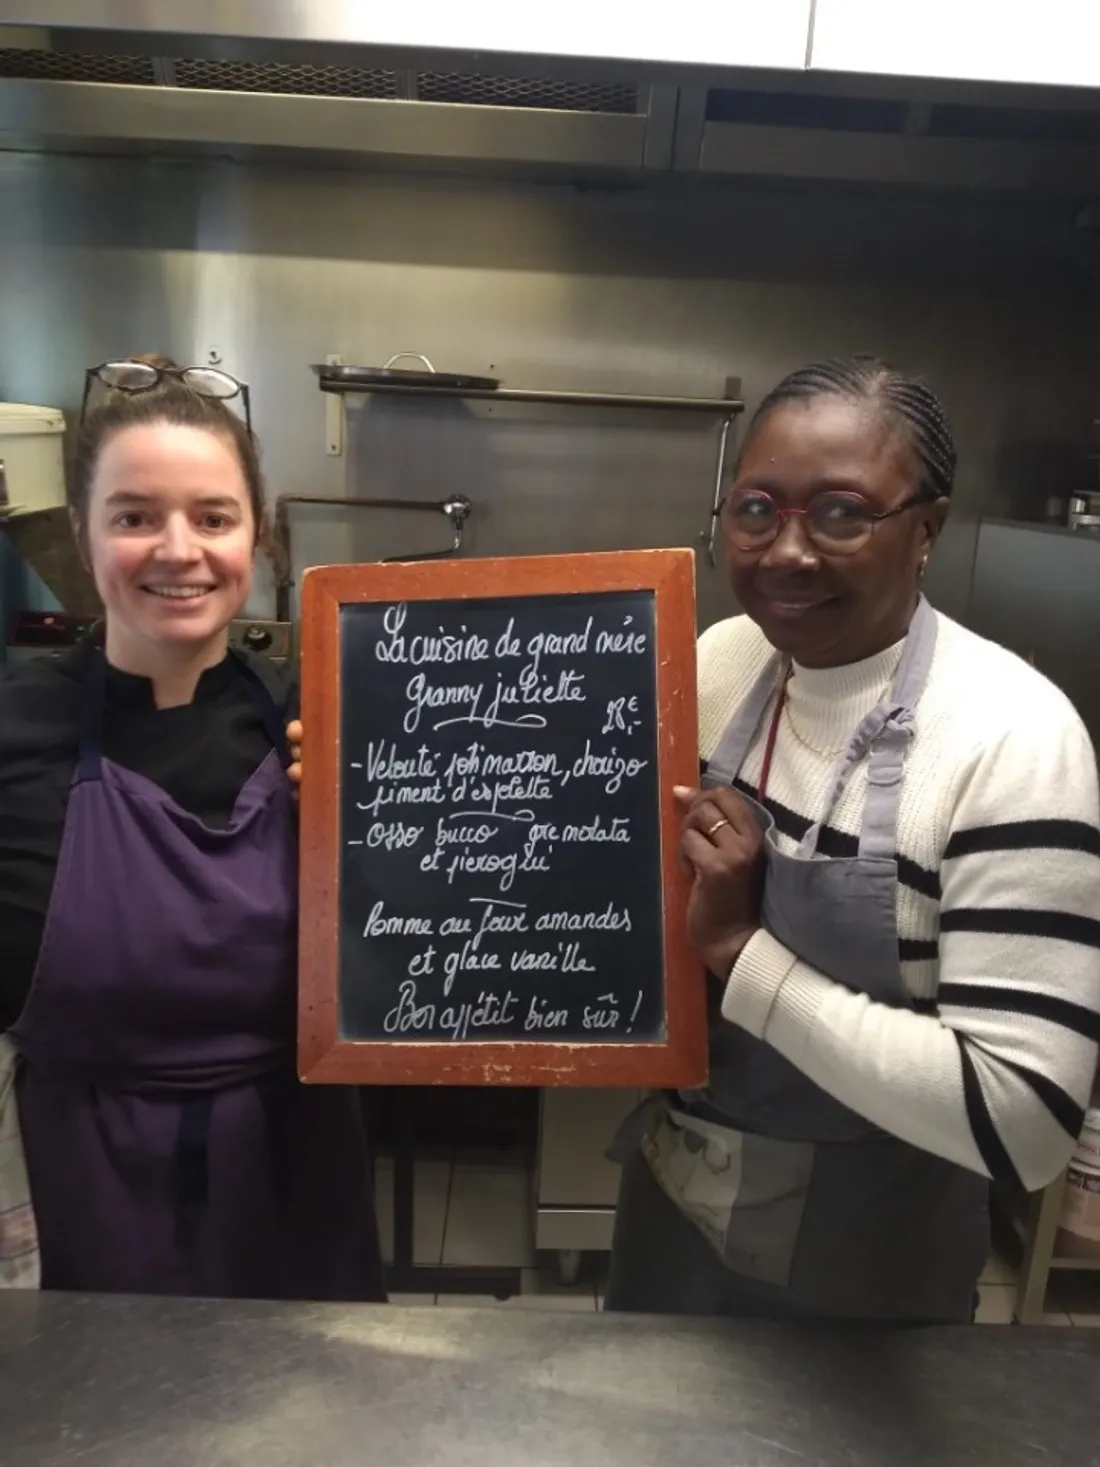 La cuisine de grand mère
Granny juliette
28€
- Velouté potimarron, chorizo
piment d'espelette
- Osso bucco gremolata
et pieroghi
Pomme au four amandes
et glace vanille
Bon appétit bien sûr !